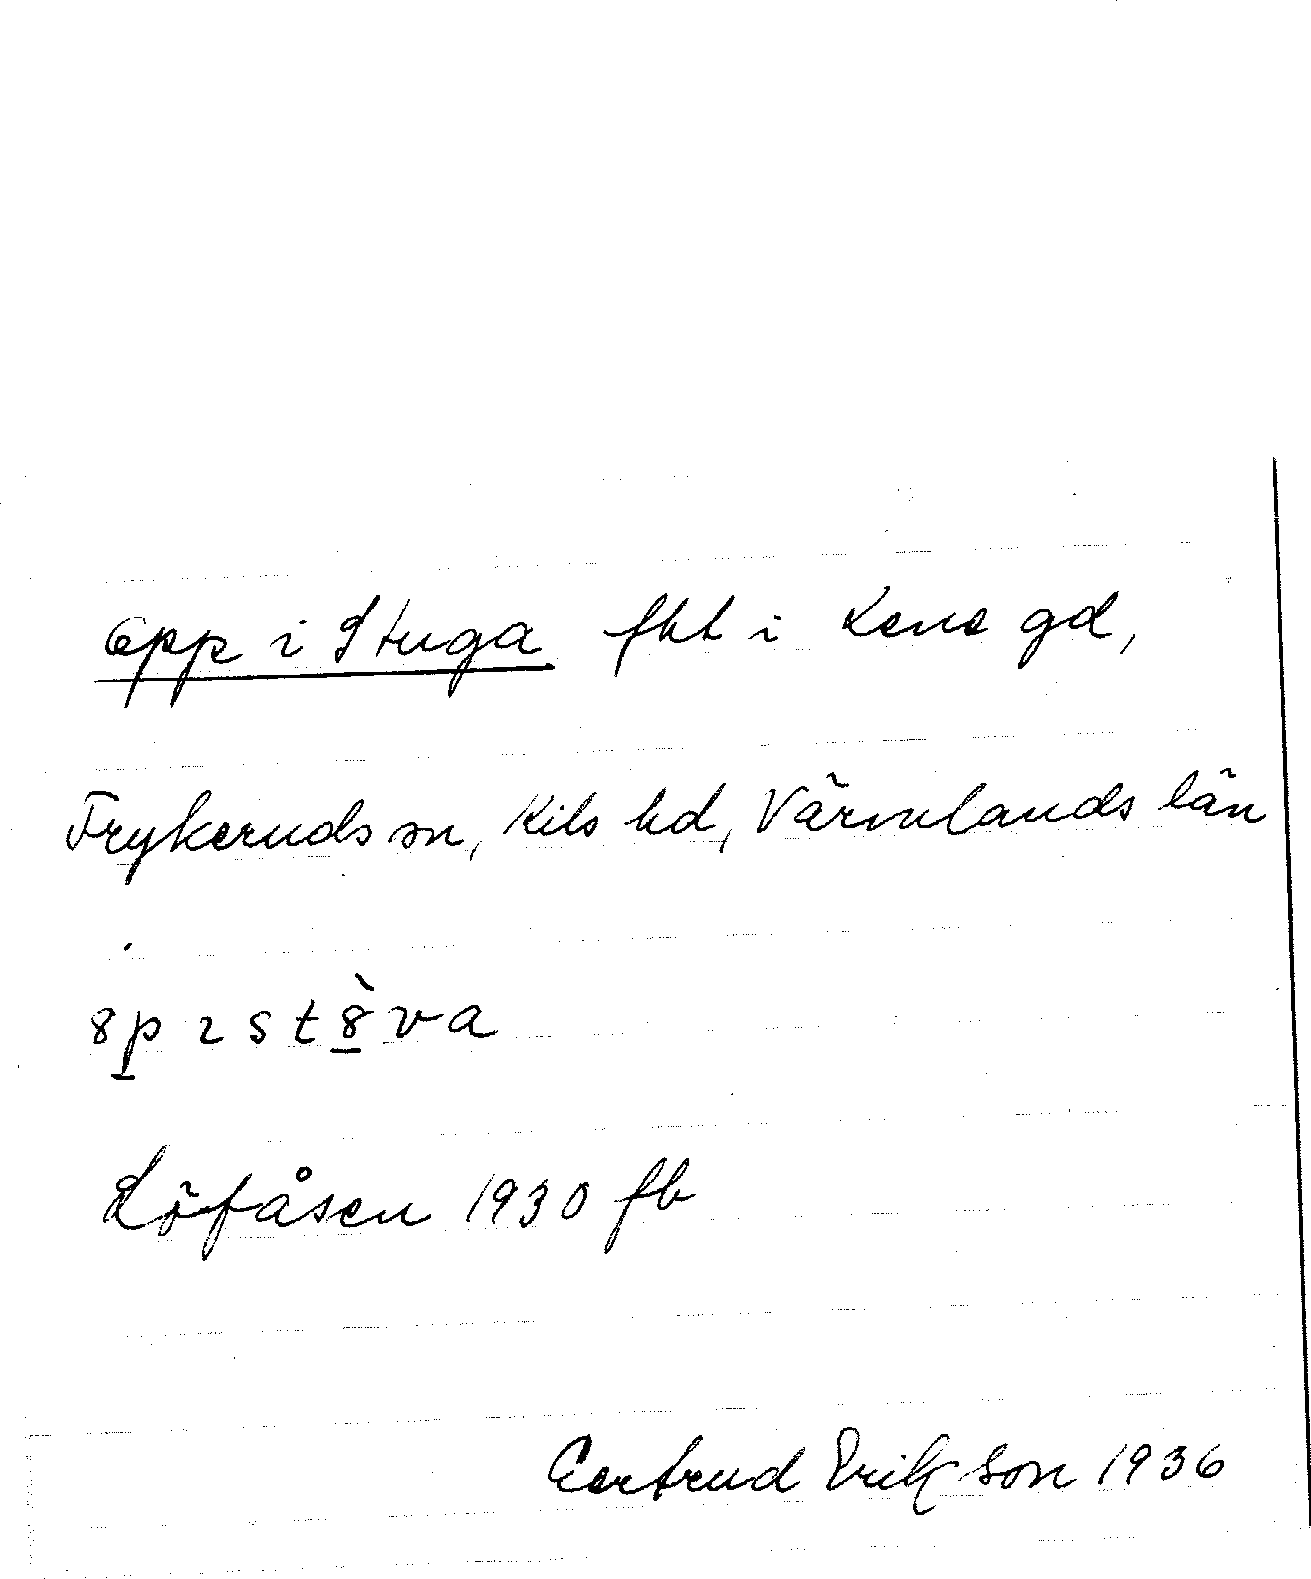 Opp i Stuga fht i Lene gd,
Frykeruds sn, Kils hd, Värmlands län
8p ı st8̀va
Löfåsen 1930 fb
Gertrud Erikson 1936